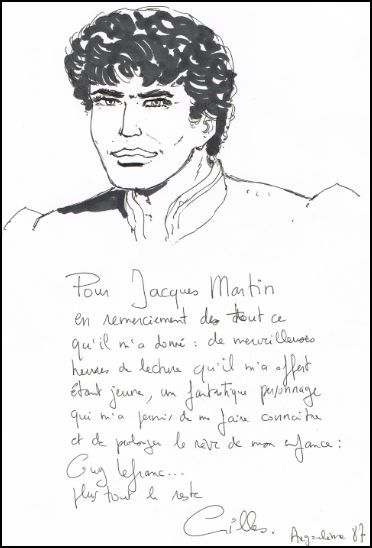 Pour Jacques Martin
en remerciement de tout ce
qu'il m'a donné : de merveilleuses
heures de lecture qu'il m'a offert
étant jeune, un fantastique personnage
qui m'a permis de me faire connaître
et de prolonger le rêve de mon enfance :
Guy Lefranc...
plus tout le reste
Gilles.
Angoulême 87